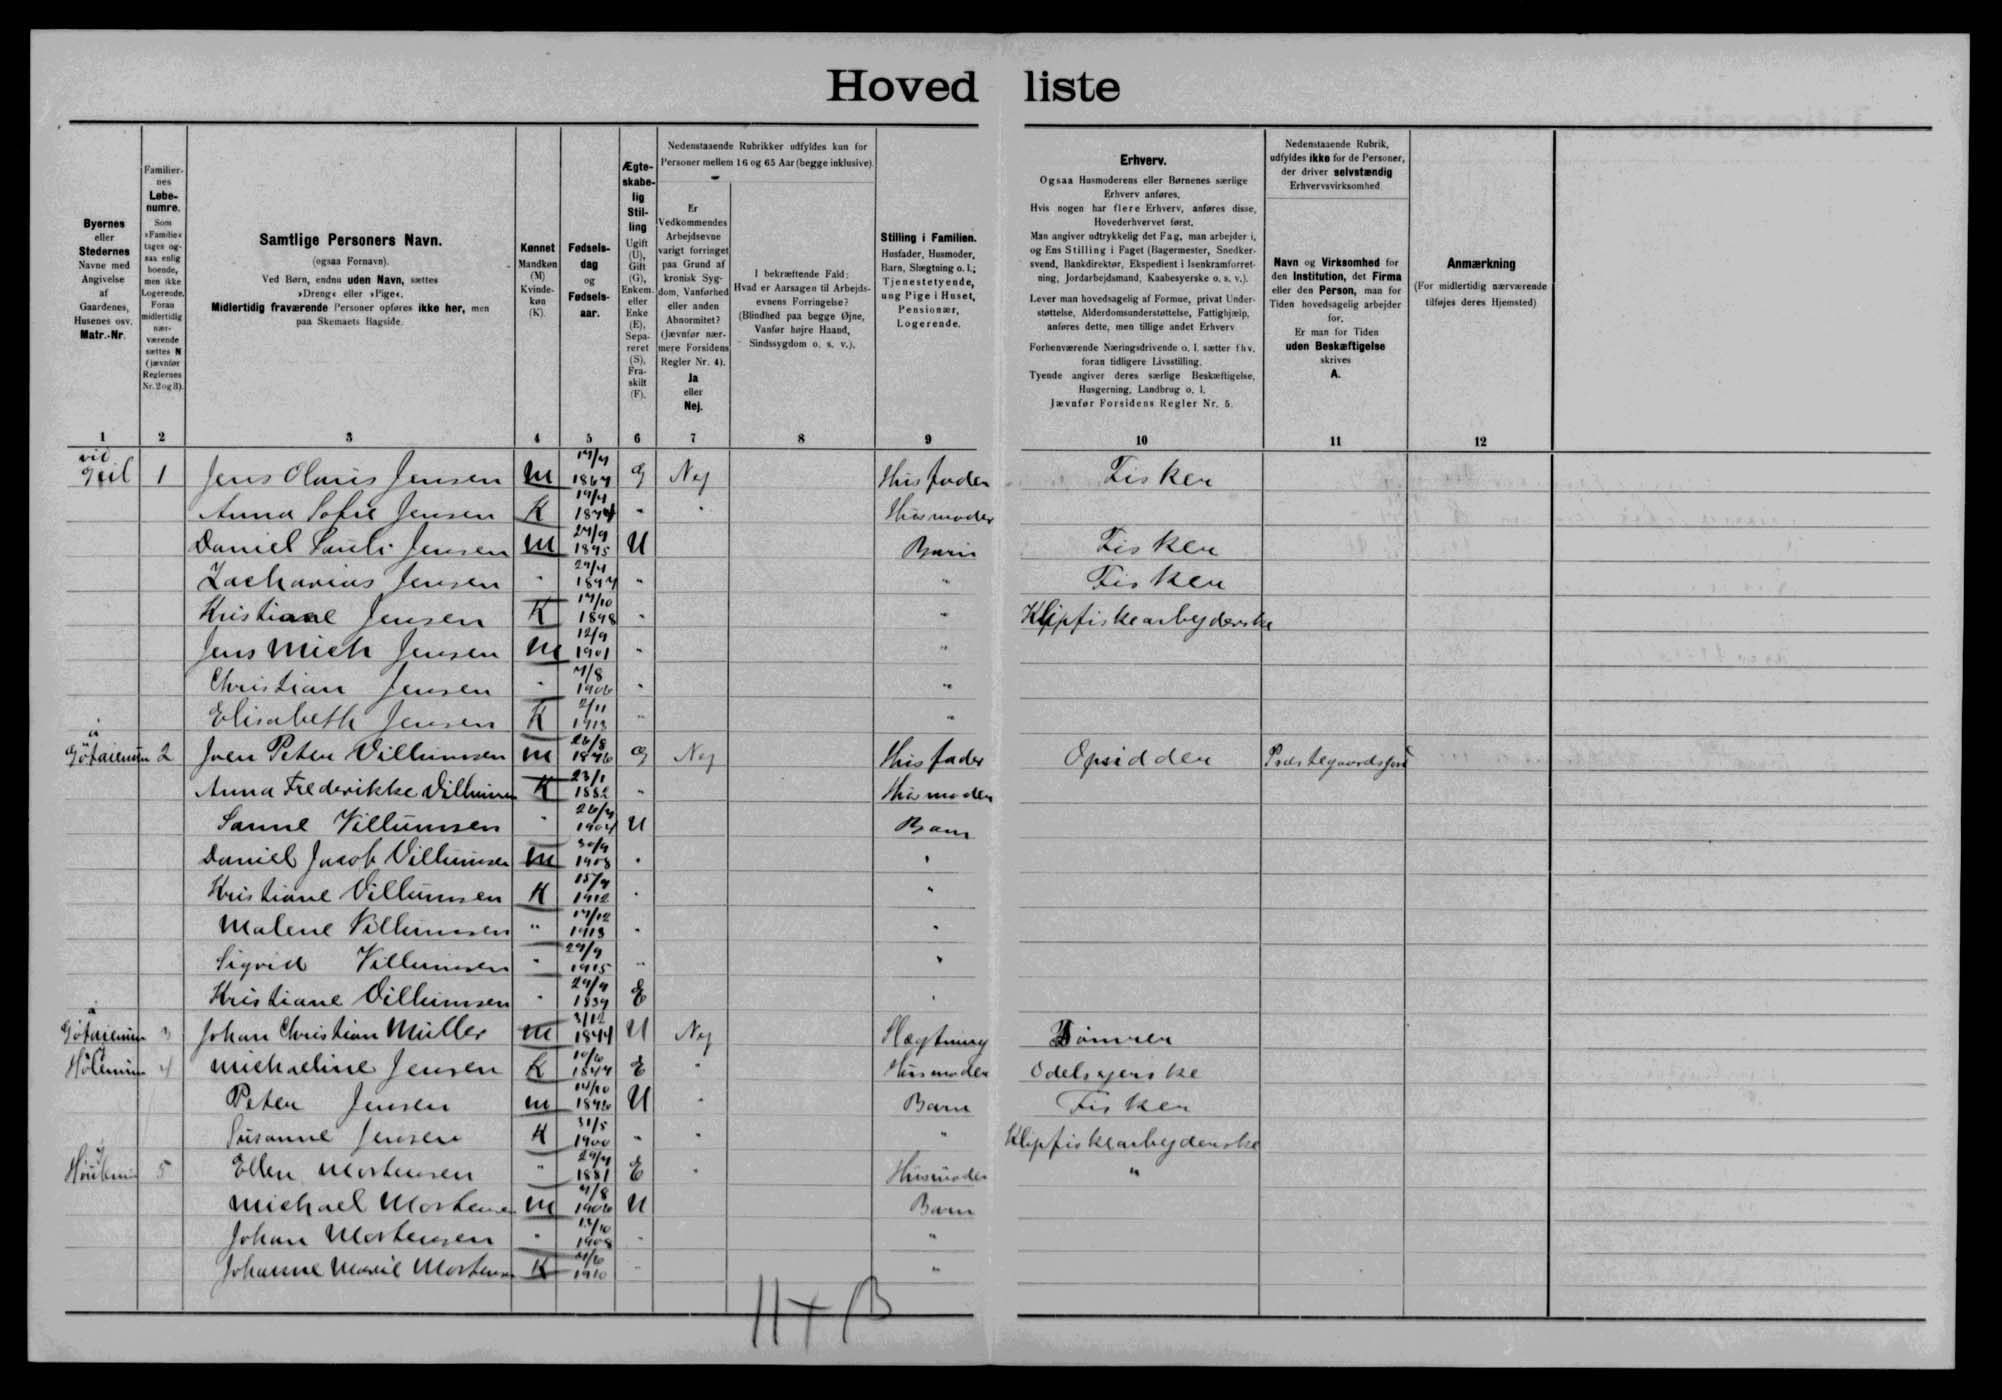 Hovedliste
Byernes
eller
Stedernes
Navne med
Angivelse
af
Gaardenes,
Husenes osv.
Matr.-Nr.
Familier-
nes
Løbe-
numre.
Som
»Familie«
tages og-
saa enlig
boende,
men ikke
Logerende.
Foran
midlertidig
nær-
værende
sættes N
(jævnfør
Reglernes
Nr. 2 og 3).
Samtlige Personers Navn.
(ogsaa Fornavn).
Ved Børn, endnu uden Navn, sættes
»Dreng« eller »Pige«.
Midlertidig fraværende Personer opføres ikke her, men
paa Skemaets Bagside.
Kønnet
Mandkøn
(M)
Kvinde-
køn
(K).
Fødsels-
dag
og
Fødsels-
aar.
Ægte-
skabe-
lig
Stil-
ling
Ugift
(U),
Gift
(G),
Enkem.
eller
Enke
(E),
Sepa-
reret
(S),
Fra-
skilt
(F).
Nedenstaaende Rubrikker udfyldes kun for
Personer mellem 16 og 65 Aar (begge inklusive).
Er
Vedkommendes
Arbejdsevne
varigt forringet
paa Grund af
kronisk Syg-
dom, Vanførhed
eller anden
Abnormitet?
(Jævnfør nær-
mere Forsidens
Regler Nr. 4).
Ja
eller
Nej.
I bekræftende Fald:
Hvad er Aarsagen til Arbejds-
evnens Forringelse?
(Blindhed paa begge Øjne,
Vanfør højre Haand,
Sindssygdom o. s. v.).
Stilling i Familien.
Husfader, Husmoder,
Barn, Slægtning o. l.;
Tjenestetyende,
ung Pige i Huset,
Pensionær,
Logerende.
Erhverv.
Ogsaa Husmoderens eller Børnenes særlige
Erhverv anføres.
Hvis nogen har flere Erhverv, anføres disse,
Hovederhvervet først.
Man angiver udtrykkelig det Fag, man arbejder i,
og Ens Stilling i Faget (Bagermester, Snedker-
svend, Bankdirektør, Ekspedient i Isenkramforret-
ning, Jordarbejdsmand, Kaabesyerske o. s. v.).
Lever man hovedsagelig af Formue, privat Under-
støttelse, Alderdomsunderstøttelse, Fattighjælp,
anføres dette, men tillige andet Erhverv
Forhenværende Næringsdrivende o. l. sætter fhv.
foran tidligere Livsstilling.
Tyende angiver deres særlige Beskæftigelse,
Husgerning, Landbrug o. l.
Jævnfør Forsidens Regler Nr. 5.
Nedenstaaende Rubrik,
udfyldes ikke for de Personer,
der driver selvstændig
Erhvervsvirksomhed.
Navn og Virksomhed for
den Institution, det Firma
eller den Person, man for
Tiden hovedsagelig arbejder
for.
Er man for Tiden
uden Beskæftigelse
skrives
A.
Anmærkning
(For midlertidig nærværende
tilføjes deres Hjemsted)
1 2 3 4 5 6 7 8 9 10 11 12
vid
Geil 1 Jens Claus Jensen M 1867 G Nej Husfader Fisker
Anna Sofie Jensen K 1874 " " Husmoder
Daniel Pauli Jensen M 1895 U Barn Fisker
Zacharias Jensen " 1897 " " Fisker
Kristiane Jensen K 17/10 1898 " " Klipfiskearbejderske
Jens Mich Jensen M 12/9 1901 " "
Christian Jensen " 7/8 1906 " "
Elisabeth Jensen K 2/11 1913 " "
á
2 Joen Peter Villumsen M 26/8 1876 G Nej Husfader Opsidder
Anna Frederikke Villumsen K 23/1 1882 " Husmoder
Sanne Villumsen " 1904 U Barn
Daniel Jacob Villumsen M 1908 " "
Kristiane Villumsen K 1912 " "
Malene Villumsen " 17/12 1913 " "
Sigrid Villumsen " 1915 " "
Kristiane Villumsen " 1839 E "
á
3 Johan Christian Müller M 3/12 U Nej Slægtning Tømrer
4 Michaeline Jensen K E " Husmoder Odelsejerske
Peter Jensen M 14/10 1896 U " Barn Fisker
Susanne Jensen K 31/5 1900 " " " Klipfiskearbejderske
5 Ellen Mortensen " 1881 E " Husmoder "
Michael Mortensen M 1906 U Barn
Johan Mortensen " 1908 " "
Johanne Marie Mortensen K 1910 " "
11 + 13